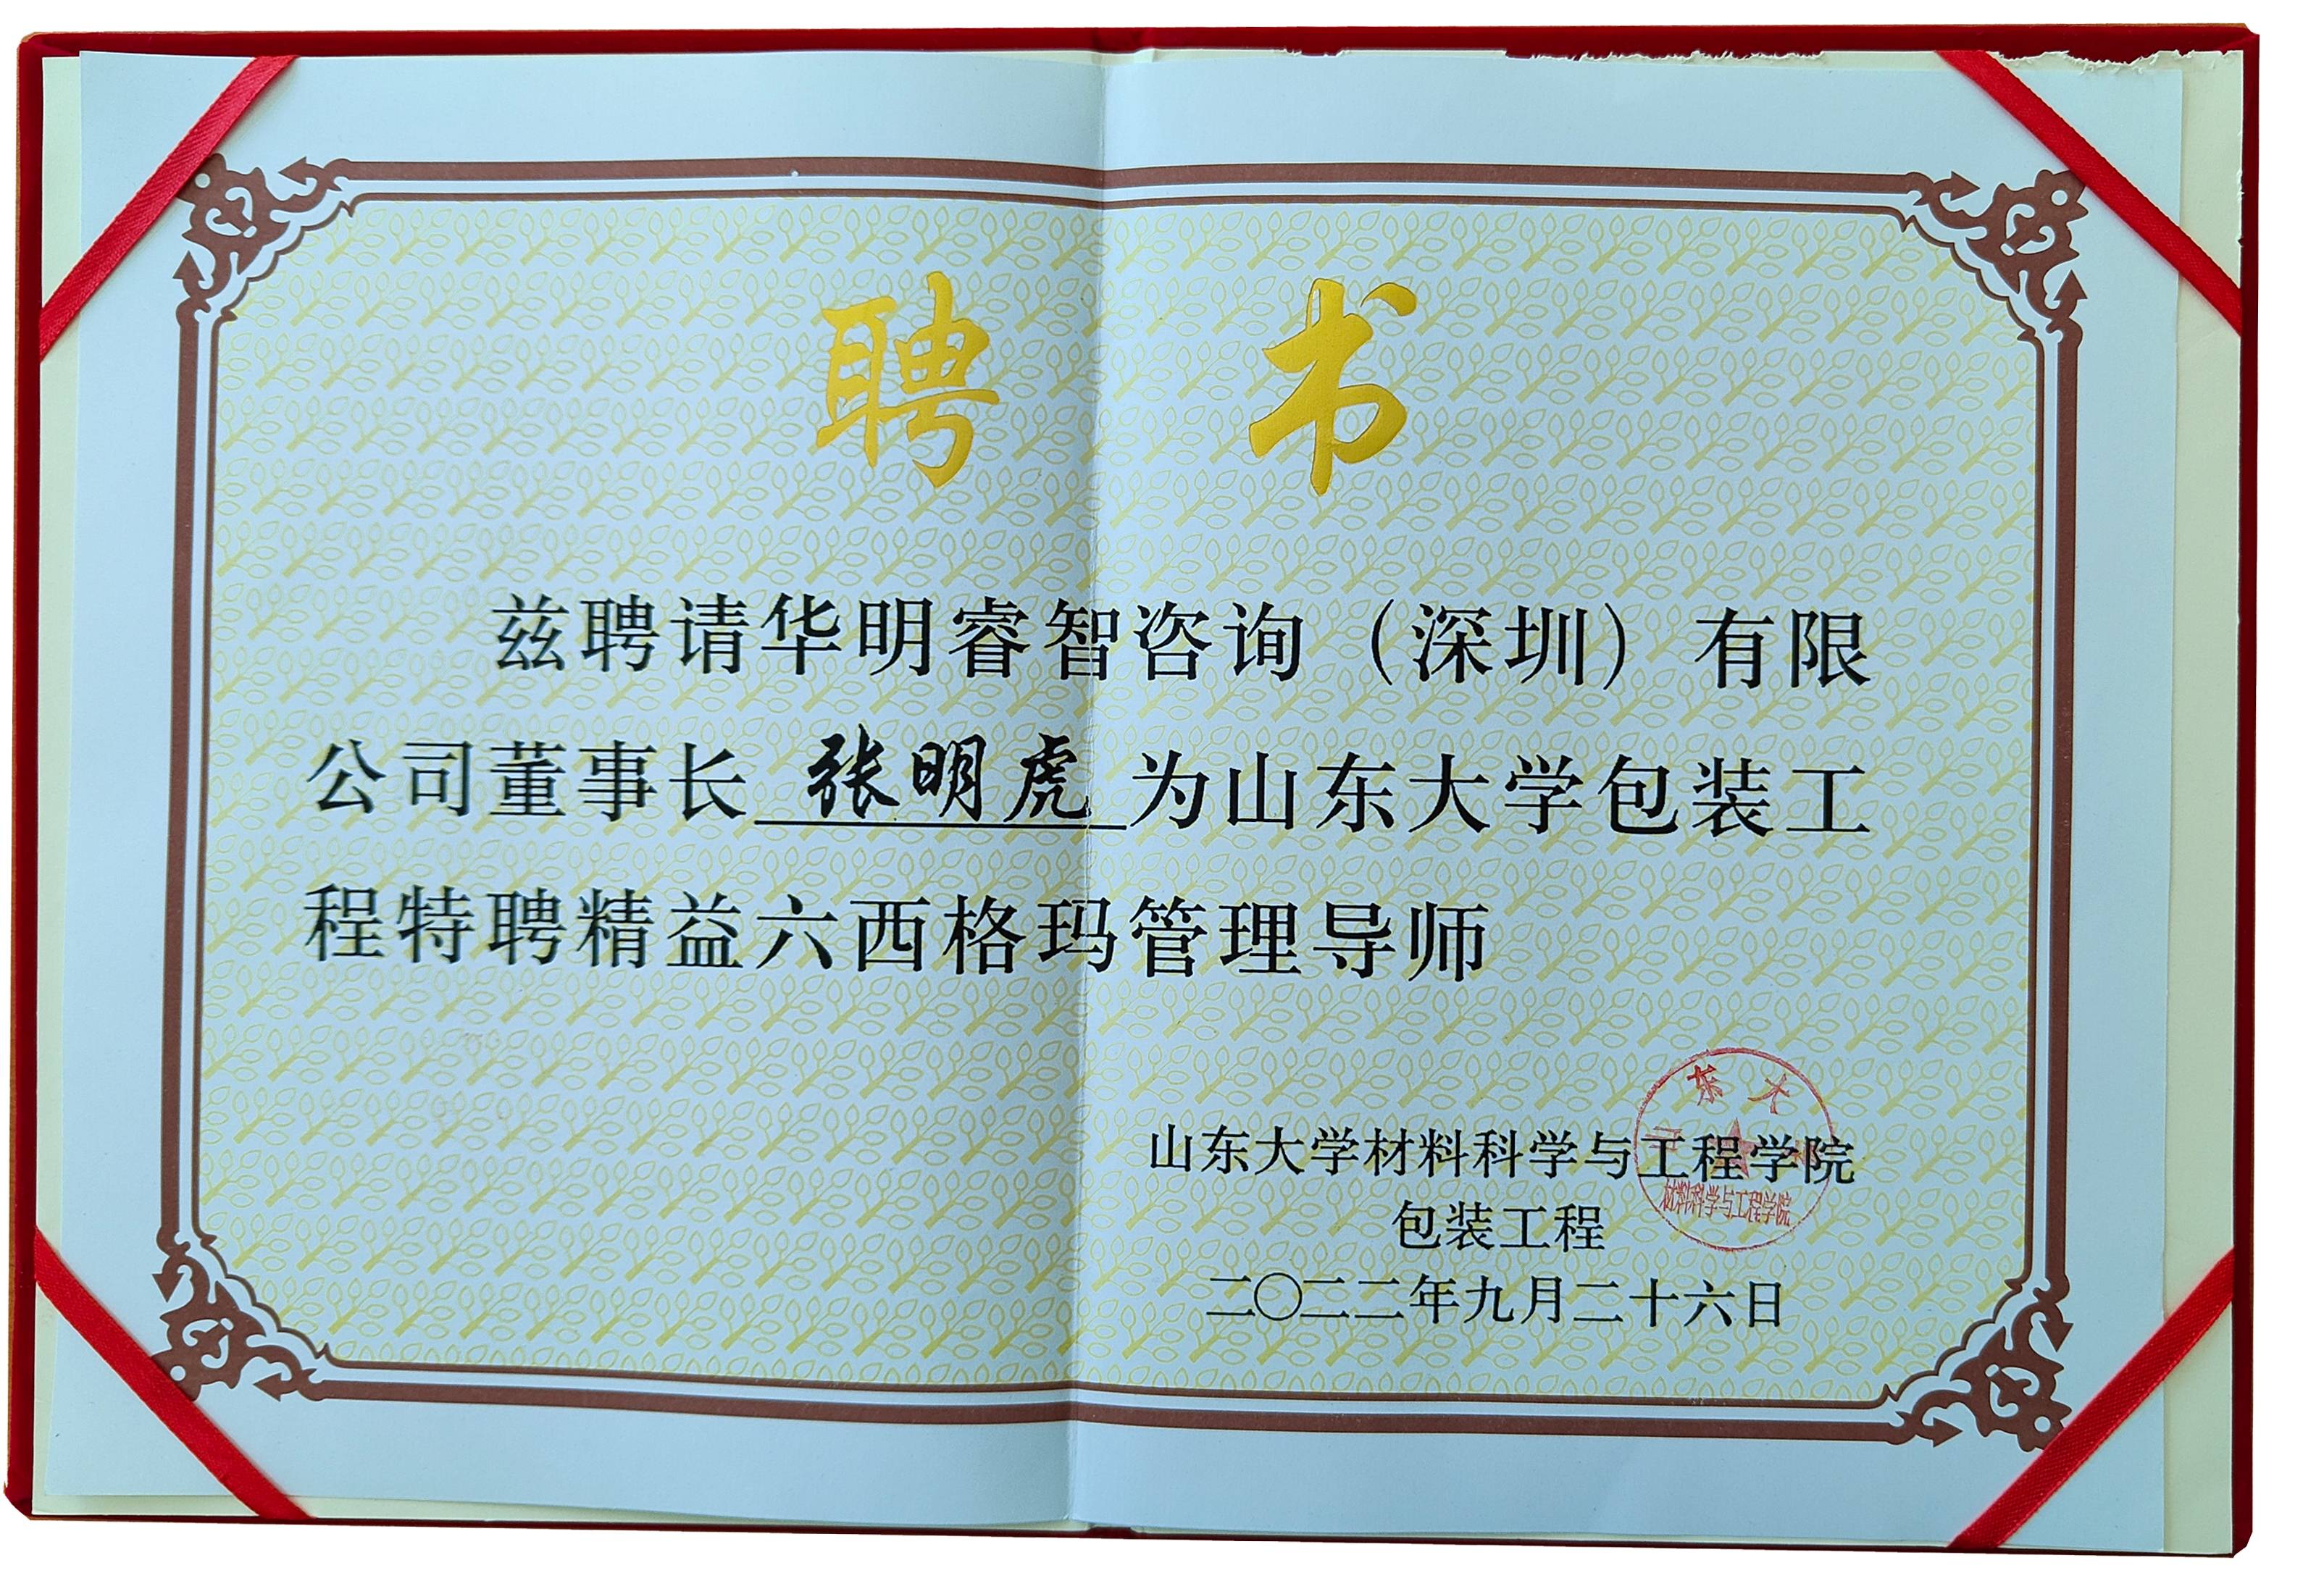 聘书
兹聘请华明睿智咨询（深圳）有限
公司董事长张明虎为山东大学包装工
程特聘精益六西格玛管理导师
东大
山东大学材料科学与工程学院
材料科学与工程学院
包装工程
二〇二二年九月二十六日